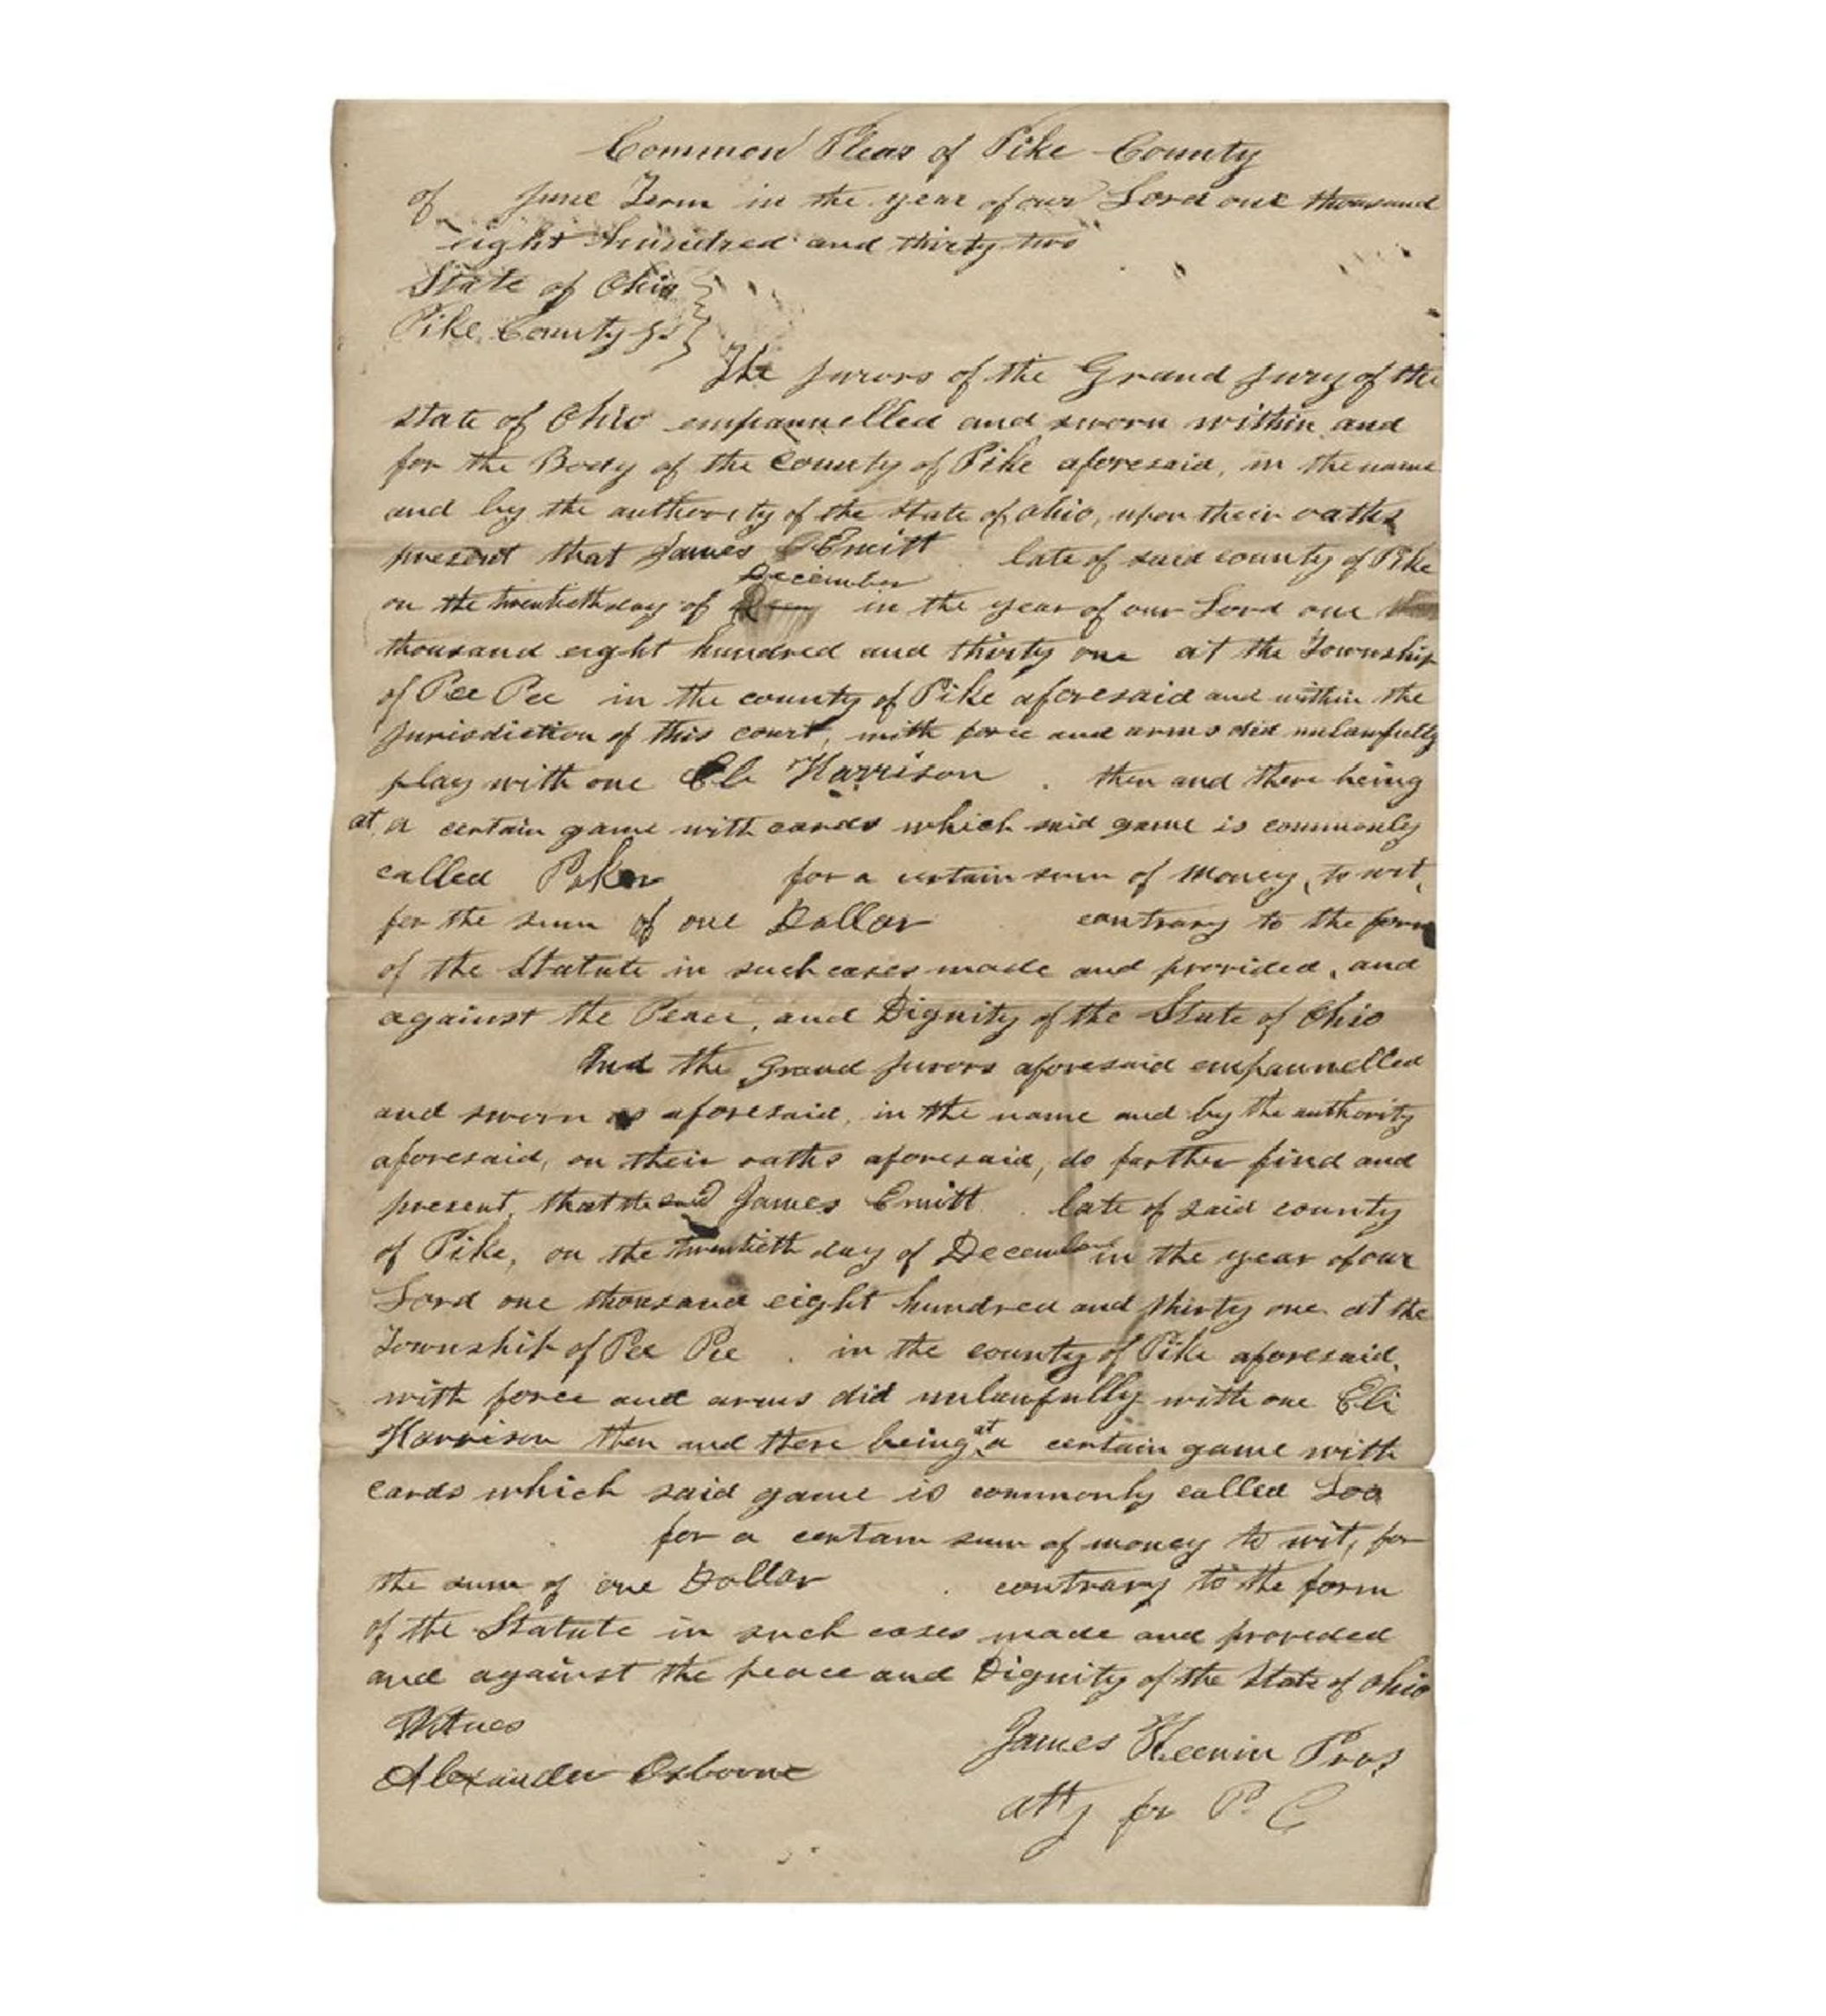 Common Pleas of Pike County
of June Term in the year of our Lord one thousand
eight hundred and thirty two
State of Ohio }
Pike County ss }
The jurors of the Grand jury of the
state of Ohio empannelled and sworn within and
for the Body of the County of Pike aforesaid, in the name
and by the authority of the State of Ohio, upon their oaths
present that James Emitt late of said county of Pike
December
on the twentieth day of in the year of our Lord one
thousand eight hundred and thirty one at the Township
of Pee Pee in the county of Pike aforesaid and within the
jurisdiction of this court, with force and arms did unlawfully
play with one Eli Harrison then and there being
at a certain game with cards which said game is commonly
called Poker for a certain sum of money, to wit,
for the sum of one Dollar contrary to the form
of the Statute in such cases made and provided, and
against the Peace, and Dignity of the State of Ohio
And the Grand jurors aforesaid empannelled
and sworn as aforesaid, in the name and by the authority
aforesaid, on their oaths aforesaid, do further find and
present, that the said James Emitt late of said county
of Pike, on the twentieth day of December in the year of our
Lord one thousand eight hundred and thirty one at the
Township of Pee Pee in the county of Pike aforesaid,
with force and arms did unlawfully with one Eli
Harrison then and there being at a certain game with
cards which said game is commonly called Loo
for a certain sum of money to wit, for
the sum of one Dollar contrary to the form
of the Statute in such cases made and provided
and against the peace and Dignity of the State of Ohio
Witnes
James Keenin Pros
Alexander Osborne
atty for P C